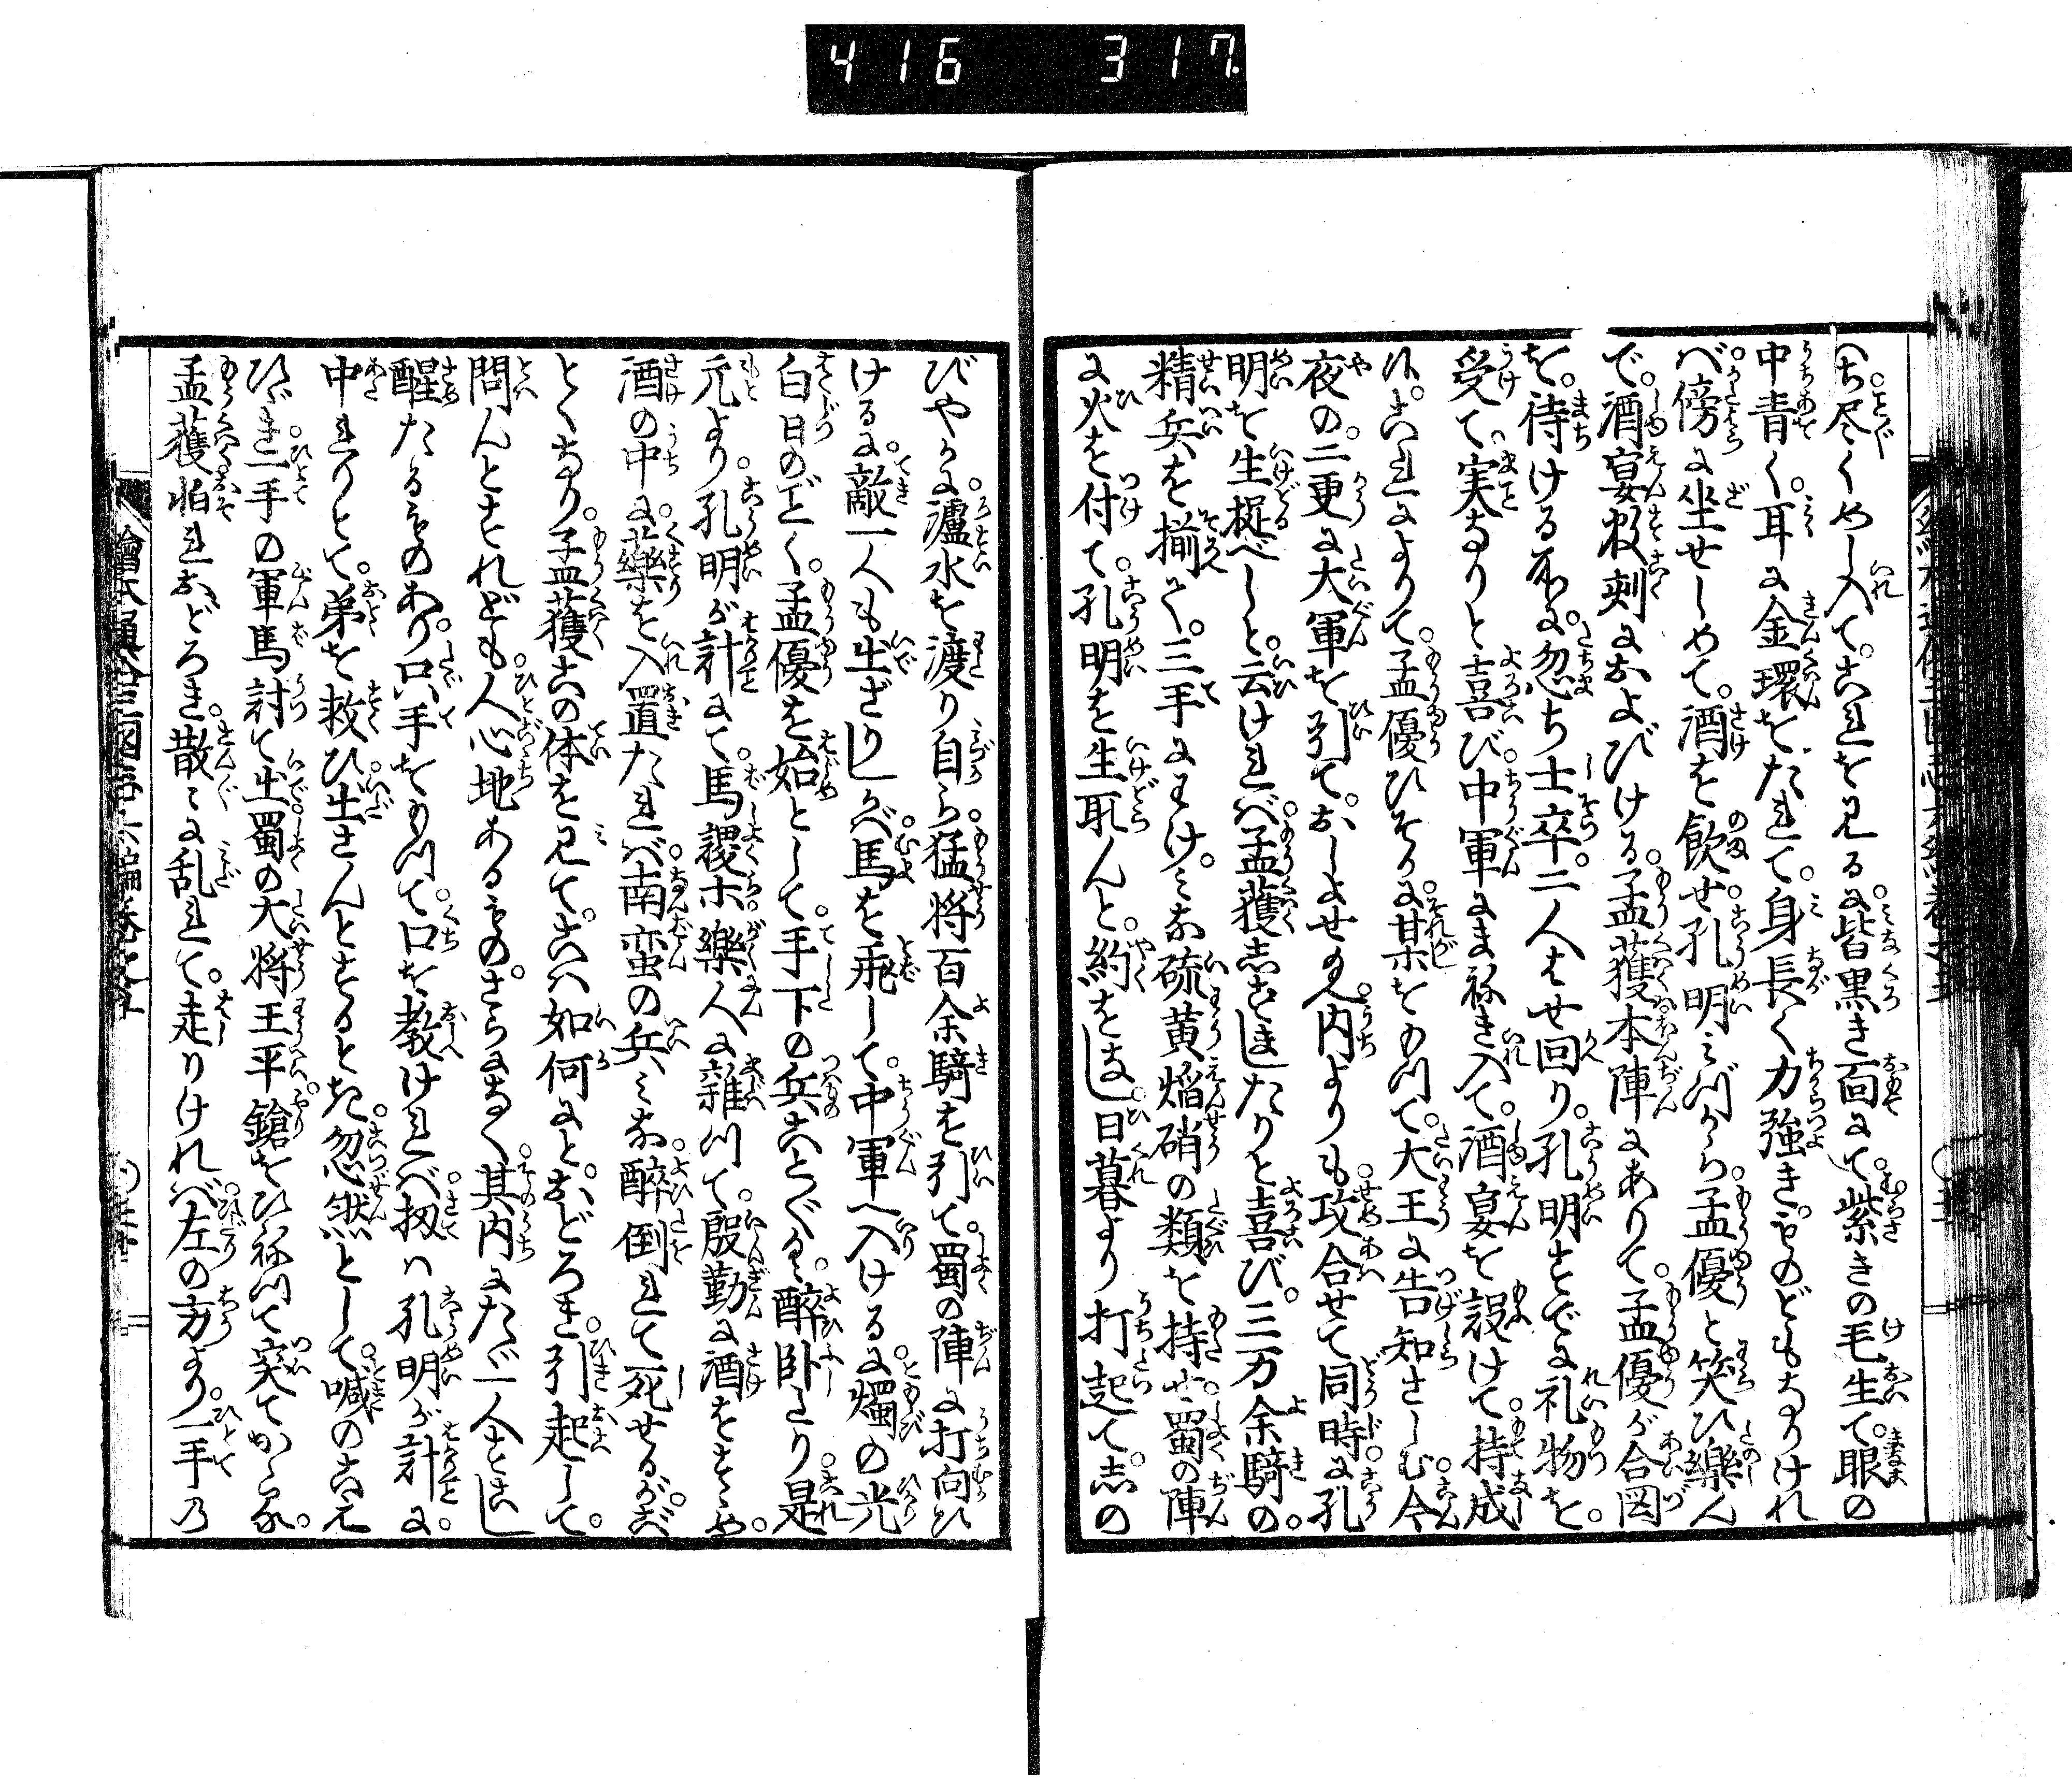 416 317
へち尽くめし入て。これを見るに。皆黒き面にて。紫きの毛生て。眼の
中青く。耳に金環をたれて。身長く力強きものどもなりけれ
ば。傍に坐せしめて。酒を飲せ。孔明みづから。孟優と笑ひ樂ん
で。酒宴数刻におよびける。孟獲本陣にありて。孟優が合図
を。待ける所に。忽ち士卒。二人はせ回り。孔明すでに礼物を。
受て。実なりと喜び。中軍にまねき入て。酒宴を設けて。持成
候。これによりて。孟優ひそかに。某をもつて。大王に告知さしむ。今
夜の。二更に大軍を引て。おしよせ玉へ。内よりも。攻合せて同時に。孔
明を生捉べしと。云けれバ。孟獲志すましたりと喜び。三万余騎の。
精兵を揃へ。三手にわけ。みな硫黄焔硝の類を持せ。蜀の陣
に火を付て。孔明を生取んと。約をしま。日暮より打起て。志の
びやかに。瀘水を渡り自ら。猛将百余騎を引て。蜀の陣に打向ひ
けるに。敵一人も出ざりしかバ。馬を飛して。中軍へ入けるに。燭の光
白日のごとく。孟優を始として。手下の兵ことごとく。醉卧たり。是
元より。孔明が計にて。馬謖ホ樂人に雜つて。殷勤に酒をすゝめ。
酒の中に。藥を入置たれバ。南蛮の兵みな。醉倒れて死せるが。ご
とくなり。孟獲此の体を見て。こハ如何にと。おどろき。引起して。
問んとすれども。人心地あるもの。さらになく。其内にただ一人すこし
醒たるものあり。只手をもつて。口を教けれバ。扨ハ孔明が計に。
中れりとて。弟を救ひ。出さんとするとき。忽然として。喊のこえ
ひゞき。一手の軍馬討て出。蜀の大将王平。鎗をひねつて突てかゝる。
孟獲怕れおどろき。散々に乱れて。走りけれバ。左の方より。一手乃